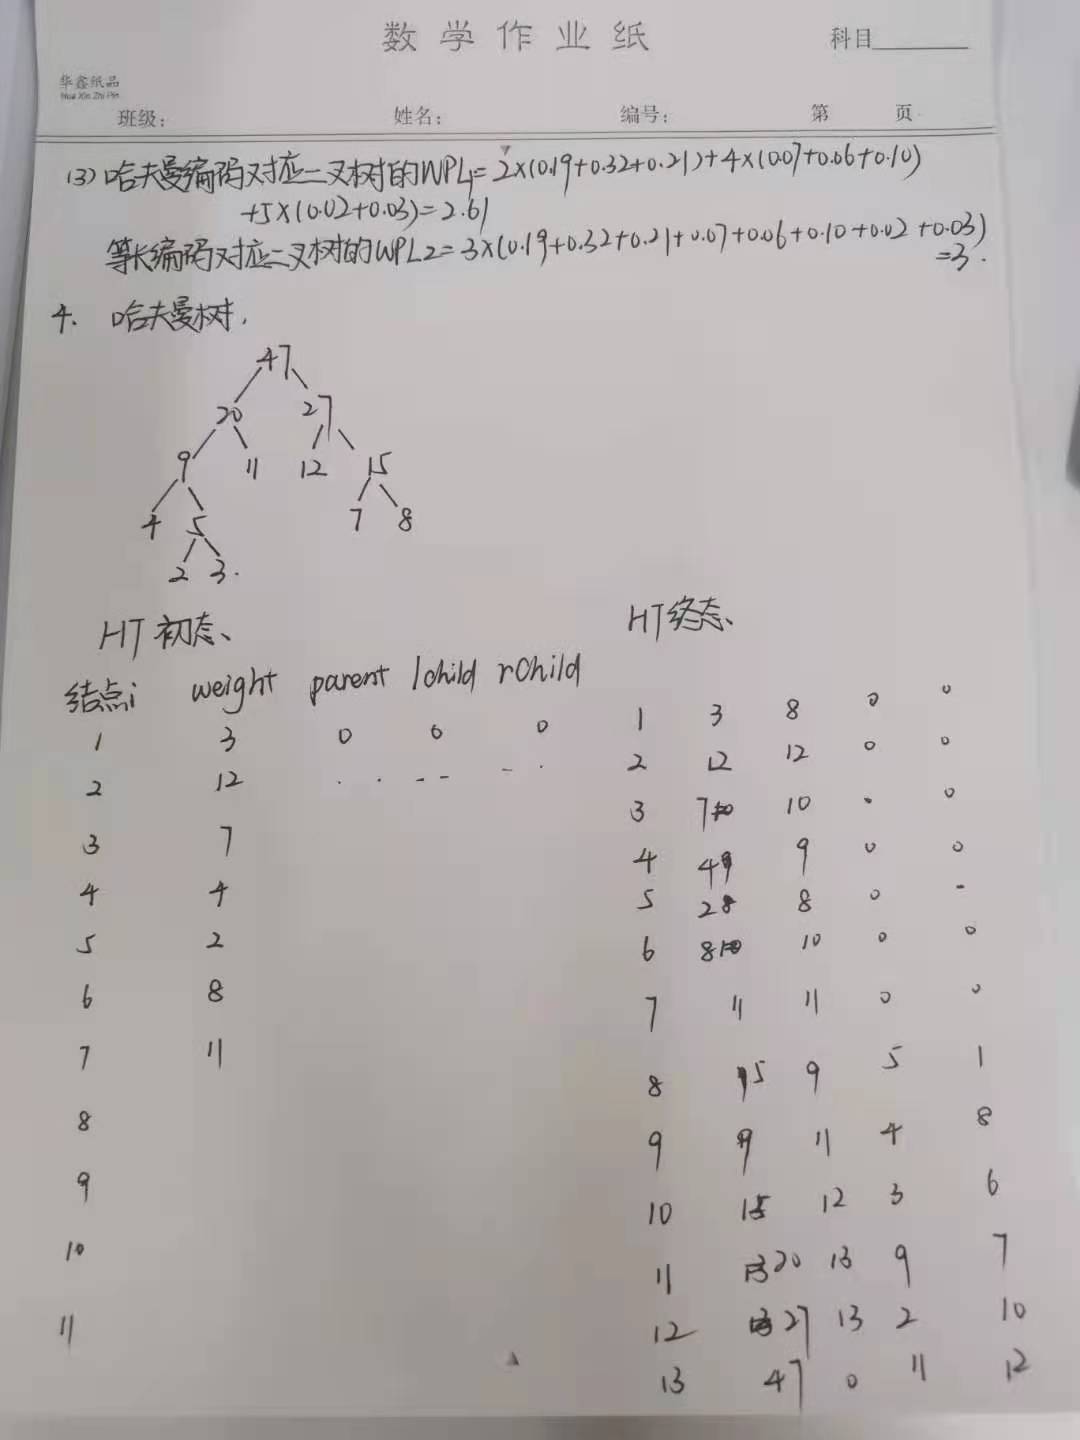 数学作业纸
科目
华鑫纸品
Hua Xin Zhi Pin
班级: 姓名: 编号: 第 页
(3)哈夫曼编码对应二叉树的WPL1=2×(0.19+0.32+0.21)+4×(0.07+0.06+0.10)
+5×(0.02+0.03)=2.61
等长编码对应二叉树的WPL2=3×(0.19+0.32+0.21+0.07+0.06+0.10+0.02+0.03)
=3.
4. 哈夫曼树.
47
20 27
9 11 12 15
4 5 7 8
2 3.
HT初态、
结点i weight parent lchild rchild
1 3 0 0 0
2 12 .. -- -.
3 7
4 4
5 2
6 8
7 11
8
9
10
11
HT终态、
1 3 8 0 0
2 12 12 0 0
3 7 10 0 0
4 4 9 0 0
5 2 8 0 -
6 8 10 0 0
7 11 11 0 0
8 5 9 5 1
9 9 11 4 8
10 15 12 3 6
11 20 13 9 7
12 27 13 2 10
13 47 0 11 12